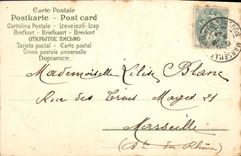 Carte Postale
Postkarte - Post card
Cartolina Postale - Levelező-Lap
Brefkort - Briefkaart - Brevkort
ОТКРЫТОЕ ПИСЬМО
Tarjeta postal - Dopisnice
Union postale universelle
Dopisnice
MARSEILLE
Mademoiselle Lilie Blanc
Rue des Trois Mages 21
Marseille
(B. du Rhône)